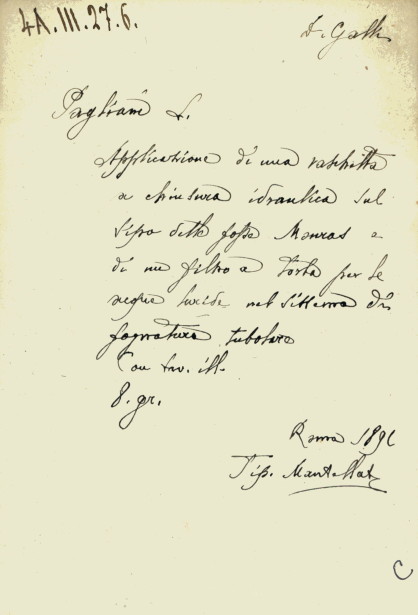 4A.III.27.6.
D. Galli
Pagliani L.
Applicazione di una vaschetta
a chiusura idraulica sul
tipo delle fosse Mouras e
di un filtro a torba per le
acque luride nel sistema di
fognatura tubolare
Con tav. ill.
8. gr.
Roma 189
Tip. Mantellate
C